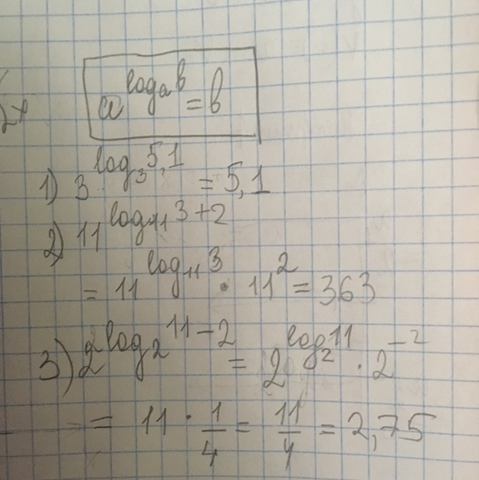 a^(log_a b) = b
1) 3^(log_3 5,1) = 5,1
2) 11^(log_11 3+2)
= 11^(log_11 3) · 11^2 = 363
3) 2^(log_2 11-2) = 2^(log_2 11) · 2^(-2)
= 11 · 1/4 = 11/4 = 2,75